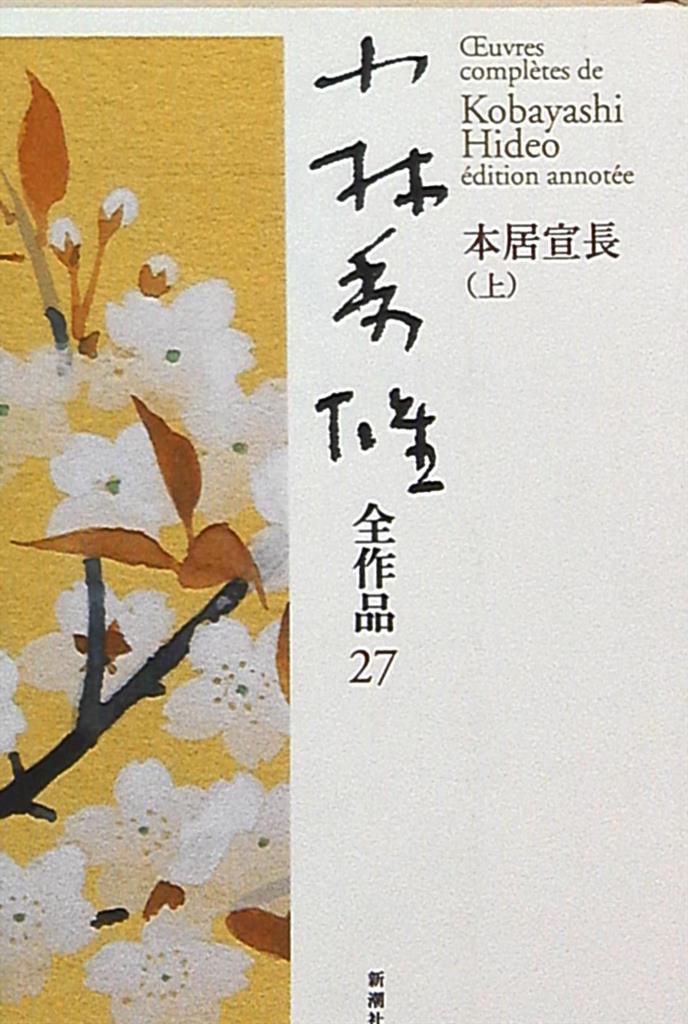 小林秀雄
全作品27
Œuvres
complètes de
Kobayashi
Hideo
édition annotée
本居宣長
(上)
新潮社